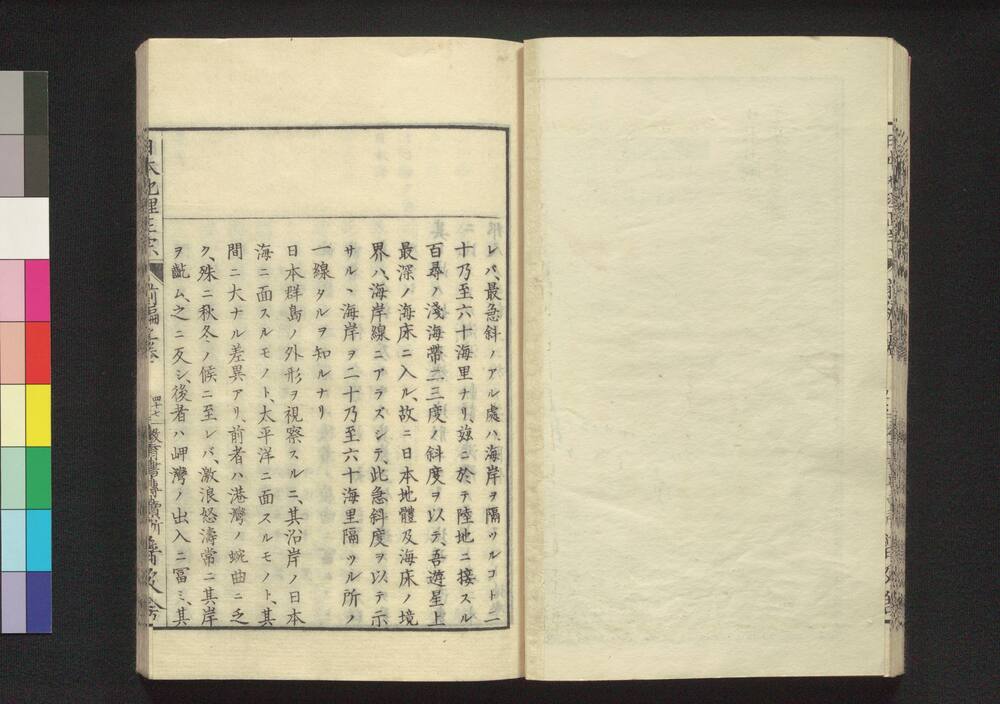 レバ、最急斜ノアル處ハ、海岸ヲ隔ツルコト二
十乃至六十海里ナリ、玆ニ於テ陸地ニ接スル
百尋ノ淺海帶二三度ノ斜度ヲ以テ、吾遊星上
最深ノ海床ニ入ル、故ニ日本地體及海床ノ境
界ハ、海岸線ニアラズシテ、此急斜度ヲ以テ示
サル丶海岸ヲ二十乃至六十海里隔ツル所ノ
一線タルヲ知ルナリ
日本群島ノ外形ヲ視察スルニ、其沿岸ノ日本
海ニ面スルモノト、太平洋ニ面スルモノト、其
間ニ大ナル差異アリ、前者ハ港灣ノ蜿曲ニ乏
ク、殊ニ秋冬ノ候ニ至レバ、激浪怒濤常ニ其岸
ヲ齕ム、之ニ反シ、後者ハ岬灣ノ出入ニ冨ミ、其
日本地理正宗 前編上卷 四十七 敎育書專賣所 普及舍